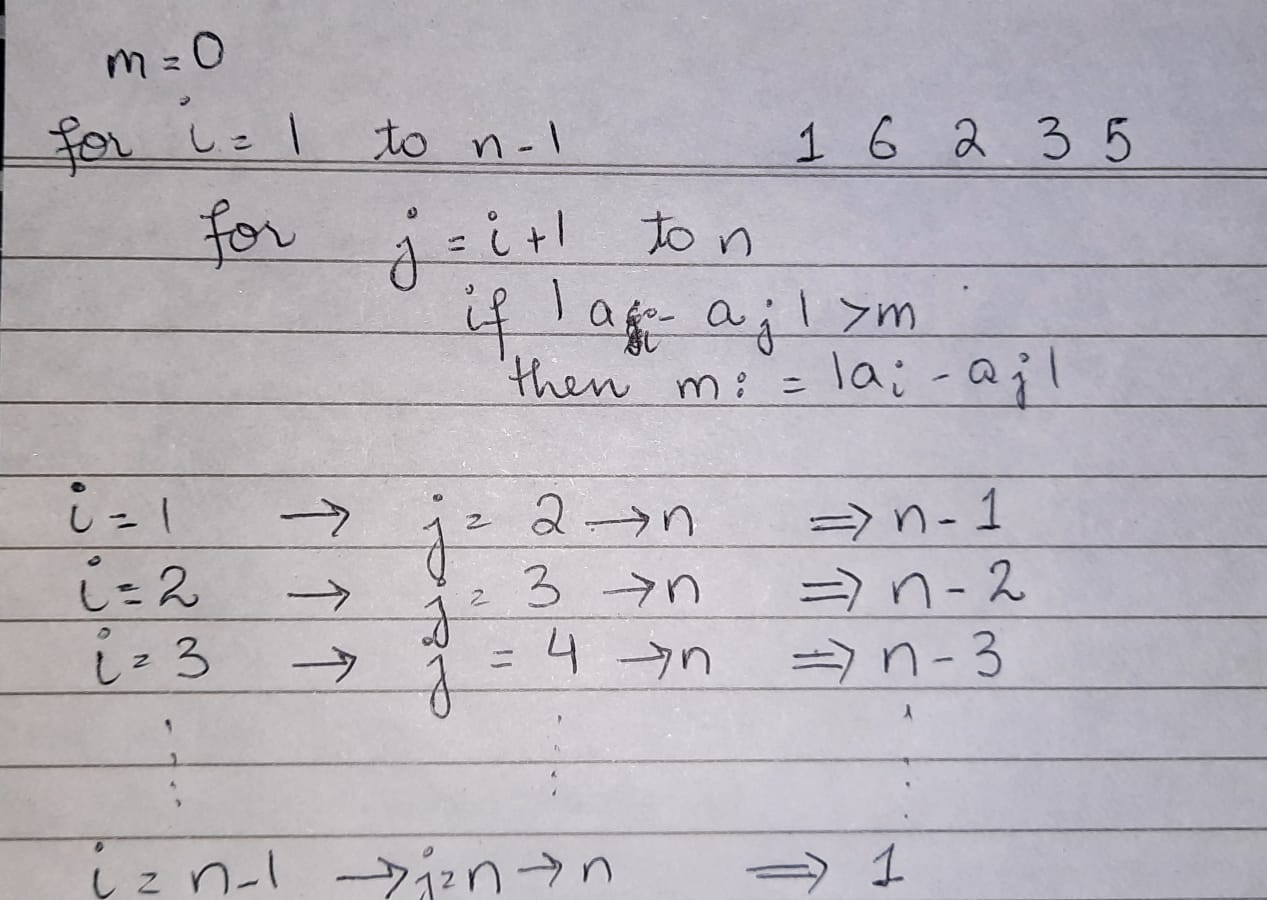 m = 0
for i = 1 to n-1 1 6 2 3 5
for j = i+1 to n
if |a - aj| > m
then m := |ai - aj|
i = 1 → j = 2 → n ⇒ n-1
i = 2 → j = 3 → n ⇒ n-2
i = 3 → j = 4 → n ⇒ n-3
i = n-1 → j = n → n ⇒ 1